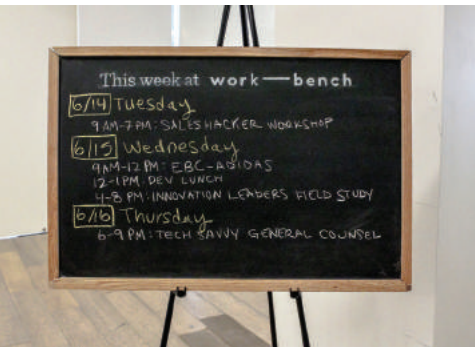 This week at work—bench
6/14 Tuesday
9 AM-7 PM: SALESHACKER WORKSHOP
6/15 Wednesday
9AM-12 PM: EBC-ADIDAS
12-1 PM: DEV LUNCH
4-8 PM: INNOVATION LEADERS FIELD STUDY
6/16 Thursday
6-9 PM: TECH SAVVY GENERAL COUNSEL